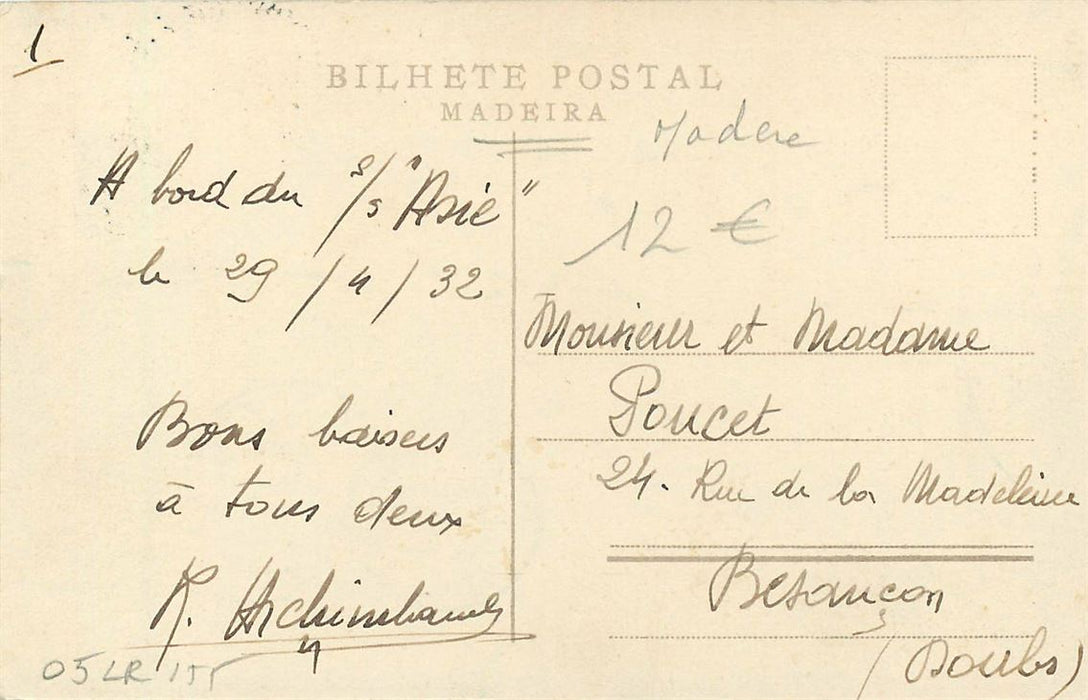 1
BILHETE POSTAL
MADEIRA
Madere
12 €
A bord du s/s "Asie"
le 29/4/32
Bons baisers
à tous deux
R. Archimbaud
05 LR 155
Monsieur et Madame
Poucet
24. Rue de la Madeleine
Besançon
(Doubs)